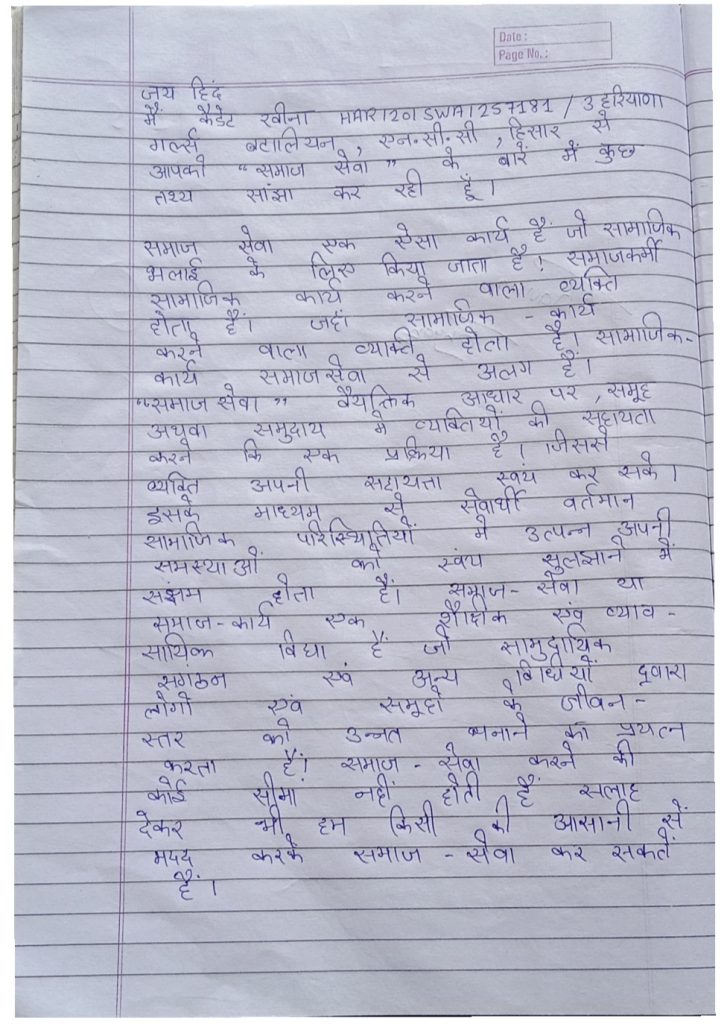 Date :
Page No. :
जय हिंद
मैं कैडेट रवीना HAR1201SWA1257181 / 3 हरियाणा
गर्ल्स बटालियन, एन.सी.सी, हिसार से
आपको "समाज सेवा" के बारे में कुछ
तथ्य सांझा कर रही हूँ।
समाज सेवा एक ऐसा कार्य हैं जो सामाजिक
भलाई के लिए किया जाता हैं। समाजकर्मी
सामाजिक कार्य करने वाला व्यक्ति
होता हैं। जहां सामाजिक - कार्य
करने वाला व्यक्ति होता हैं। सामाजिक-
कार्य समाज सेवा से अलग हैं।
"समाज सेवा" वैयक्तिक आधार पर, समूह
अथवा समुदाय में व्यक्तियों की सहायता
करने कि एक प्रक्रिया हैं। जिससे
व्यक्ति अपनी सहायत्ता स्वयं कर सके।
इसके माध्यम से सेवार्थी वर्तमान
सामाजिक परिस्थितियों में उत्पन्न अपनी
समस्याओं को स्वंय सुलझाने में
सक्षम होता हैं। समाज-सेवा या
समाज-कार्य एक शैक्षिक एवं व्याव-
सायिक विधा हैं जो सामुदायिक
सगठन एवं अन्य विधियों द्वारा
लोगो एवं समूहो के जीवन-
स्तर को उन्नत बनाने का प्रयत्न
करता हैं। समाज-सेवा करने की
कोई सीमा नहीं होती हैं सलाह
देकर भी हम किसी की आसानी सें
मदद करके समाज-सेवा कर सकतें
हैं।